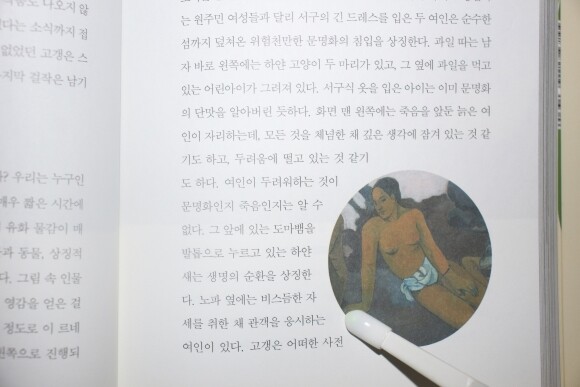 음도 나오지 않
다는 소식까지 접
없었던 고갱은 스
지막 걸작은 남기
? 우리는 누구인
매우 짧은 시간에
유화 물감이 매
과 동물, 상징적
다. 그림 속 인물
영감을 얻은 걸
정도로 이 르네
왼쪽으로 진행되
는 원주민 여성들과 달리 서구의 긴 드레스를 입은 두 여인은 순수한
섬까지 덮쳐온 위험천만한 문명화의 침입을 상징한다. 과일 따는 남
자 바로 왼쪽에는 하얀 고양이 두 마리가 있고, 그 옆에 과일을 먹고
있는 어린아이가 그려져 있다. 서구식 옷을 입은 아이는 이미 문명화
의 단맛을 알아버린 듯하다. 화면 맨 왼쪽에는 죽음을 앞둔 늙은 여
인이 자리하는데, 모든 것을 체념한 채 깊은 생각에 잠겨 있는 것 같
기도 하고, 두려움에 떨고 있는 것 같기
도 하다. 여인이 두려워하는 것이
문명화인지 죽음인지는 알 수
없다. 그 앞에 있는 도마뱀을
발톱으로 누르고 있는 하얀
새는 생명의 순환을 상징한
다. 노파 옆에는 비스듬한 자
세를 취한 채 관객을 응시하는
여인이 있다. 고갱은 어떠한 사전